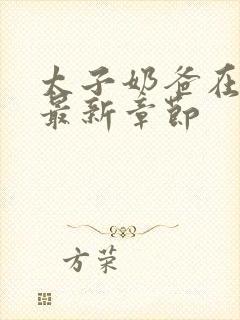 太子奶爸在
最新章节
方荣